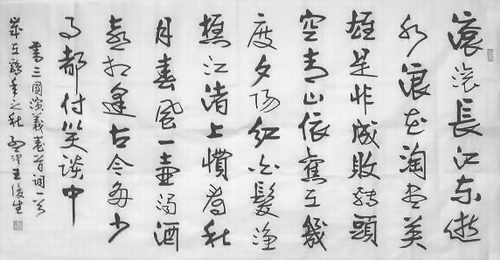 滚滚長江东逝
水浪花淘尽英
雄是非成敗转頭
空青山依舊在幾
度夕陽红白髮渔
樵江渚上惯看秋
月春風一壶濁酒
喜相逢古今多少
事都付笑谈中
書三國演義卷首词一首
岁在年之秋王俊生